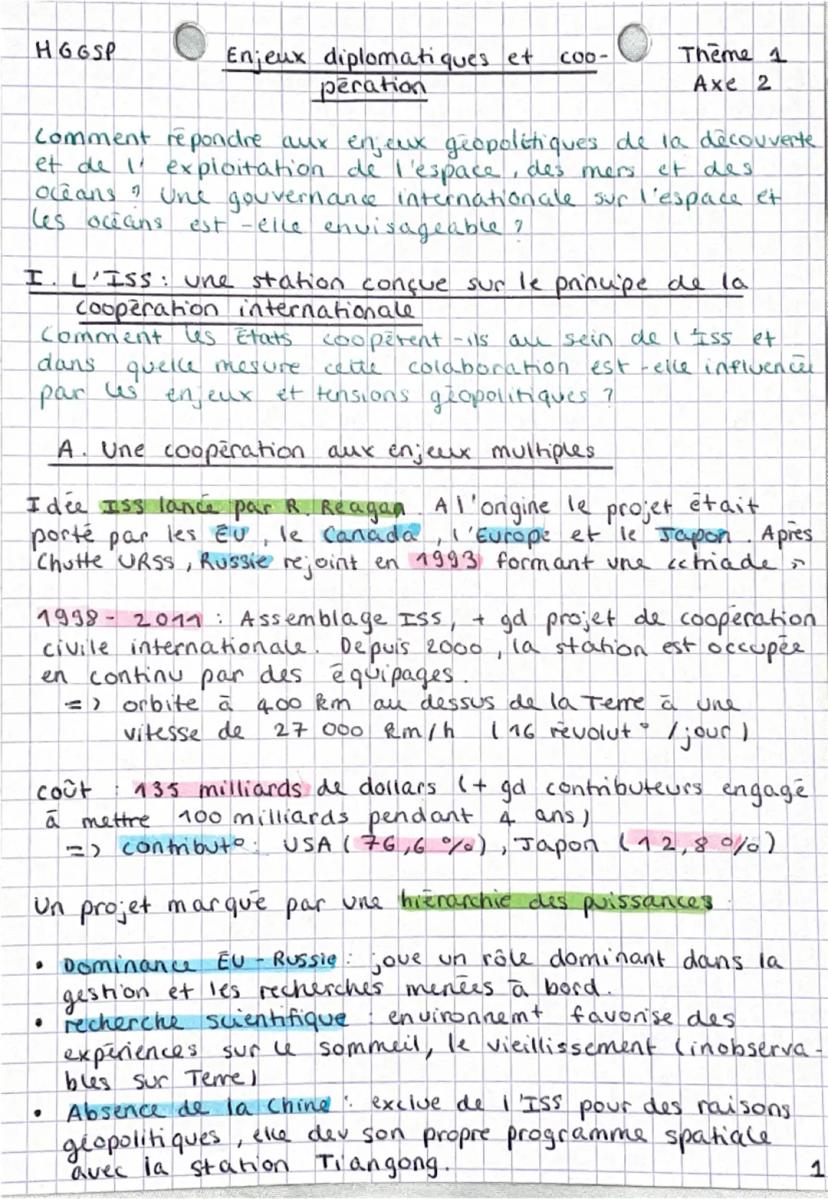 HGGSP
Enjeux diplomatiques et coo-
pération
Thème 1
Axe 2
Comment répondre aux enjeux géopolitiques de la découverte
et de l' exploitation de l'espace, des mers et des
océans ? Une gouvernance internationale sur l'espace et
les océans est-elle envisageable ?
I. L'ISS : une station conçue sur le principe de la
coopération internationale
Comment les États coopèrent-ils au sein de l'ISS et
dans quelle mesure cette colaboration est-elle influencée
par les enjeux et tensions géopolitiques ?
A. Une coopération aux enjeux multiples
Idée ISS lancé par R. Reagan. A l'origine le projet était
porté par les EU, le Canada, l'Europe et le Japon. Après
Chutte URSS, Russie rejoint en 1993 formant une « triade »
1998 - 2011 : Assemblage ISS, + gd projet de coopération
civile internationale. Depuis 2000, la station est occupée
en continu par des équipages.
=> orbite à 400 km au dessus de la Terre à une
vitesse de 27 000 km/h (16 révolut° /jour)
coût : 135 milliards de dollars (+ gd contributeurs engagé
à mettre 100 milliards pendant 4 ans)
=> contribut° : USA (76,6 %), Japon (12,8 %)
Un projet marqué par une hiérarchie des puissances :
• Dominance EU - Russie : joue un rôle dominant dans la
gestion et les recherches menées à bord.
• recherche scientifique : environnemt favorise des
expériences sur le sommeil, le vieillissement (inobserva-
bles sur Terre)
• Absence de la Chine : exclue de l'ISS pour des raisons
géopolitiques, elle dev son propre programme spatiale
avec la station Tiangong.
1